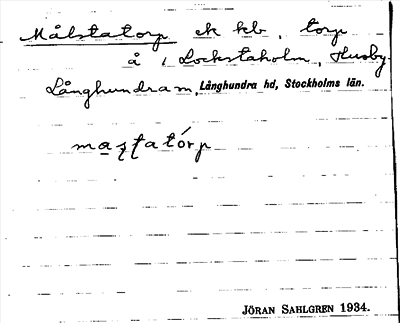 Målstatorp ek kb, torp
å i Lockstaholm, Husby-
Långhundra m, Långhundra hd, Stockholms län.
JÖRAN SAHLGREN 1934.